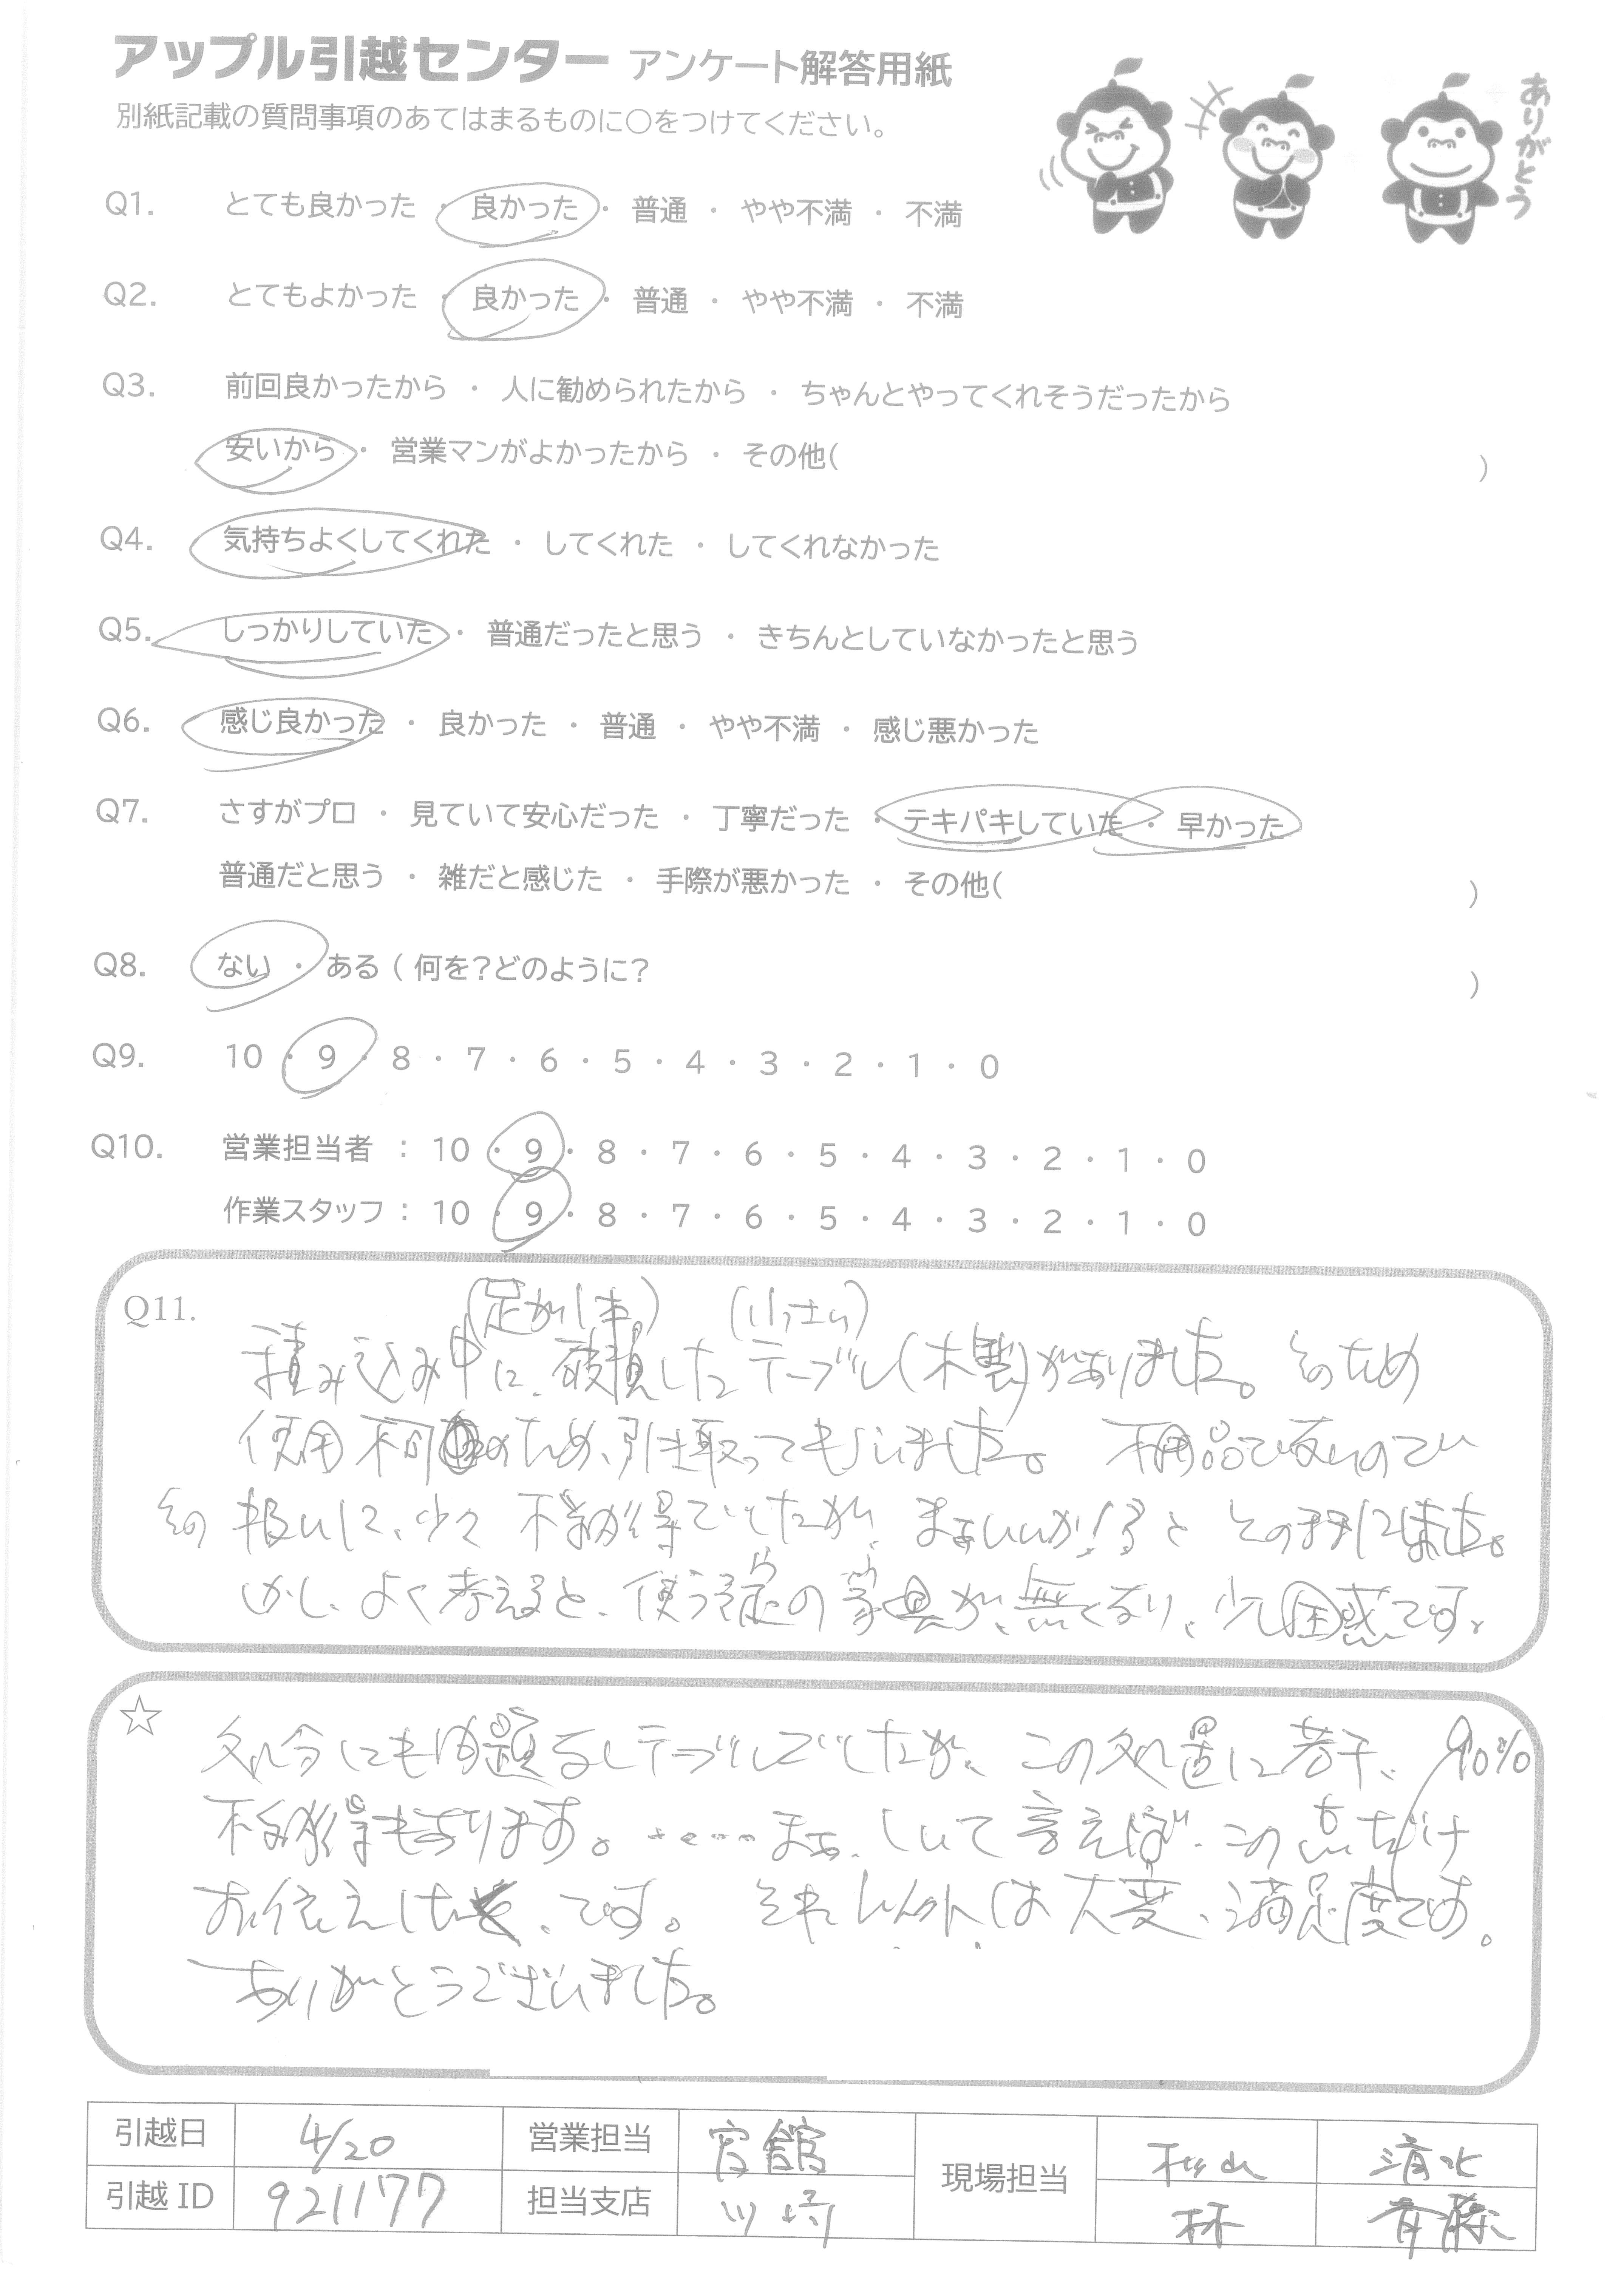 アップル引越センター アンケート解答用紙
別紙記載の質問事項のあてはまるものに○をつけてください。
ありがとう
Q1. とても良かった ・ 良かった ・ 普通 ・ やや不満 ・ 不満
Q2. とてもよかった ・ 良かった ・ 普通 ・ やや不満 ・ 不満
Q3. 前回良かったから ・ 人に勧められたから ・ ちゃんとやってくれそうだったから
安いから ・ 営業マンがよかったから ・ その他( )
Q4. 気持ちよくしてくれた ・ してくれた ・ してくれなかった
Q5. しっかりしていた ・ 普通だったと思う ・ きちんとしていなかったと思う
Q6. 感じ良かった ・ 良かった ・ 普通 ・ やや不満 ・ 感じ悪かった
Q7. さすがプロ ・ 見ていて安心だった ・ 丁寧だった ・ テキパキしていた ・ 早かった
普通だと思う ・ 雑だと感じた ・ 手際が悪かった ・ その他( )
Q8. ない ・ ある ( 何を?どのように? )
Q9. 10 ・ 9 ・ 8 ・ 7 ・ 6 ・ 5 ・ 4 ・ 3 ・ 2 ・ 1 ・ 0
Q10. 営業担当者 : 10 ・ 9 ・ 8 ・ 7 ・ 6 ・ 5 ・ 4 ・ 3 ・ 2 ・ 1 ・ 0
作業スタッフ : 10 ・ 9 ・ 8 ・ 7 ・ 6 ・ 5 ・ 4 ・ 3 ・ 2 ・ 1 ・ 0
Q11. (足が1本) (小さい)
積み込み中に、破損したテーブル(木製)がありました。そのため
使用不可のため、引き取ってもらいました。 不用品で無いので
その扱いに、少々不納得でしたが、まぁいいか!とそのままにしました。
しかし、よく考えると、使う予定の家具が、無くなり、少し困惑です。
☆ 処分にも問題なしテーブルでしたが、この処置に若干、90%
不納得もあります。……まぁ、しいて言えば、この点だけ
お伝えしたく、です。 それ以外は大変、満足度です。
ありがとうございました。
引越日 4/20 営業担当 官舘 現場担当 松山 清水
引越 ID 921177 担当支店 川崎 林 斉藤